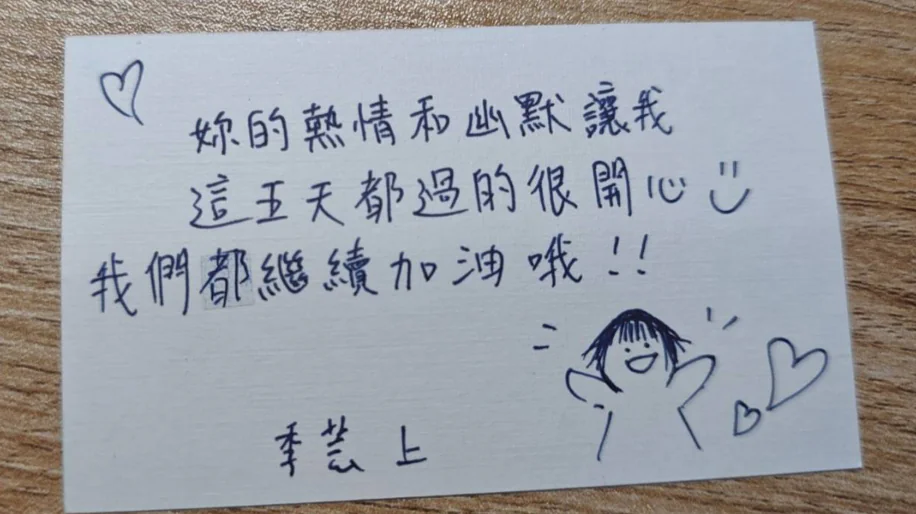 妳的熱情和幽默讓我
這五天都過的很開心
我們都繼續加油哦!!
季芸上